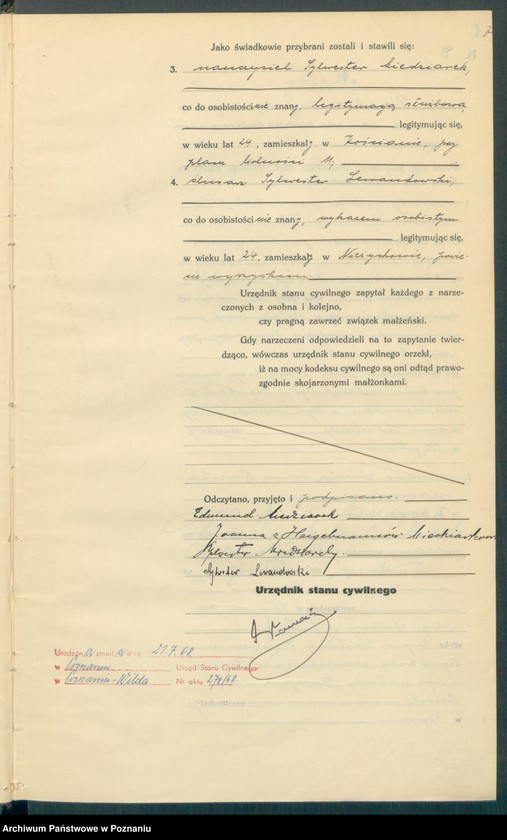 Jako świadkowie przybrani zostali i stawili się:
3. nauczyciel Sylwester Miedziarek,
co do osobistości nie znany, legitymacją służbową
legitymując się,
w wieku lat 24, zamieszkały w Kościanie, przy
placu Wolności 11,
4. ślusarz Sylwester Lewandowski,
co do osobistości nie znany, wykazem osobistym
legitymując się,
w wieku lat 24, zamieszkały w powie-
cie wyrzyskim.
Urzędnik stanu cywilnego zapytał każdego z narze-
czonych z osobna i kolejno,
czy pragną zawrzeć związek małżeński.
Gdy narzeczeni odpowiedzieli na to zapytanie twier-
dząco, wówczas urzędnik stanu cywilnego orzekł,
iż na mocy kodeksu cywilnego są oni odtąd prawo-
zgodnie skojarzonymi małżonkami.
Odczytano, przyjęto i podpisano.
Edmund Miedziarek
Joanna z
Sylwester Miedziarek.
Sylwester Lewandowski
Urzędnik stanu cywilnego
zmarł 21.7.68
w Poznaniu Urząd Stanu Cywilnego
w Poznaniu-Wilda Nr aktu 278/68
Archiwum Państwowe w Poznaniu